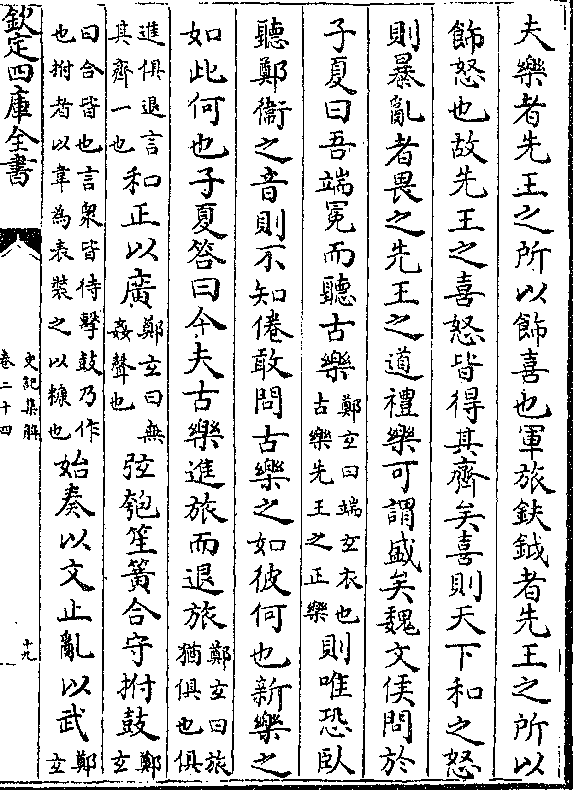 夫樂者先王之所以飾喜也軍旅鈇鉞者先王之所以
飾怒也故先王之喜怒皆得其齊矣喜則天下和之怒
則暴亂者畏之先王之道禮樂可謂盛矣魏文侯問於
子夏曰吾端冕而聽古樂鄭玄曰端玄衣也古樂先王之正樂則唯恐臥
聽鄭衞之音則不知倦敢問古樂之如彼何也新樂之
如此何也子夏答曰今夫古樂進旅而退旅鄭玄曰旅猶俱也俱
進俱退言其齊一也和正以廣鄭玄曰無姦聲也弦匏笙簧合守拊鼓鄭玄
曰合皆也言衆皆待擊鼓乃作也拊者以韋為表裝之以糠也始奏以文止亂以武鄭玄
欽定四庫全書
史記集解
卷二十四
十九